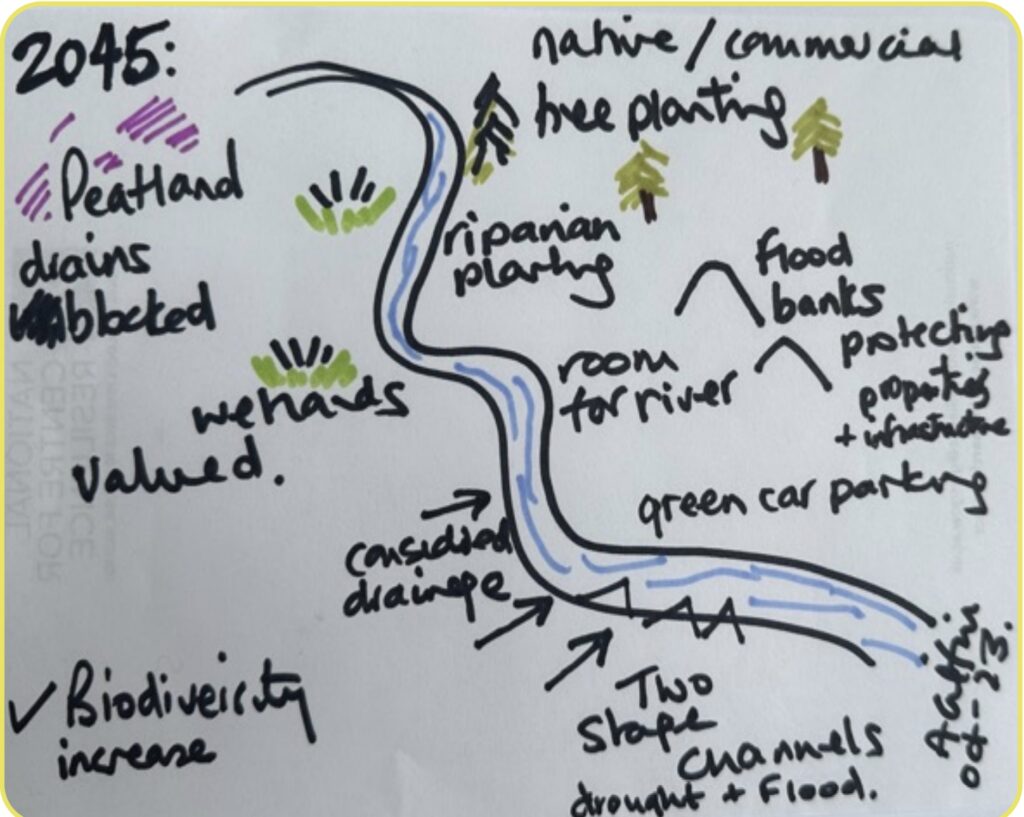 2045:
native / commercial
tree planting
Peatland
drains
blocked
riparian
planting
flood
banks
protecting
properties
+ infrastructure
room
for river
wetlands
valued.
green car parking
considered
drainage
Two
Stage
Channels
drought + Flood.
✓ Biodivercity
increase
Oct - 23.
RESILIENCE
CENTRE FOR
NATIONAL